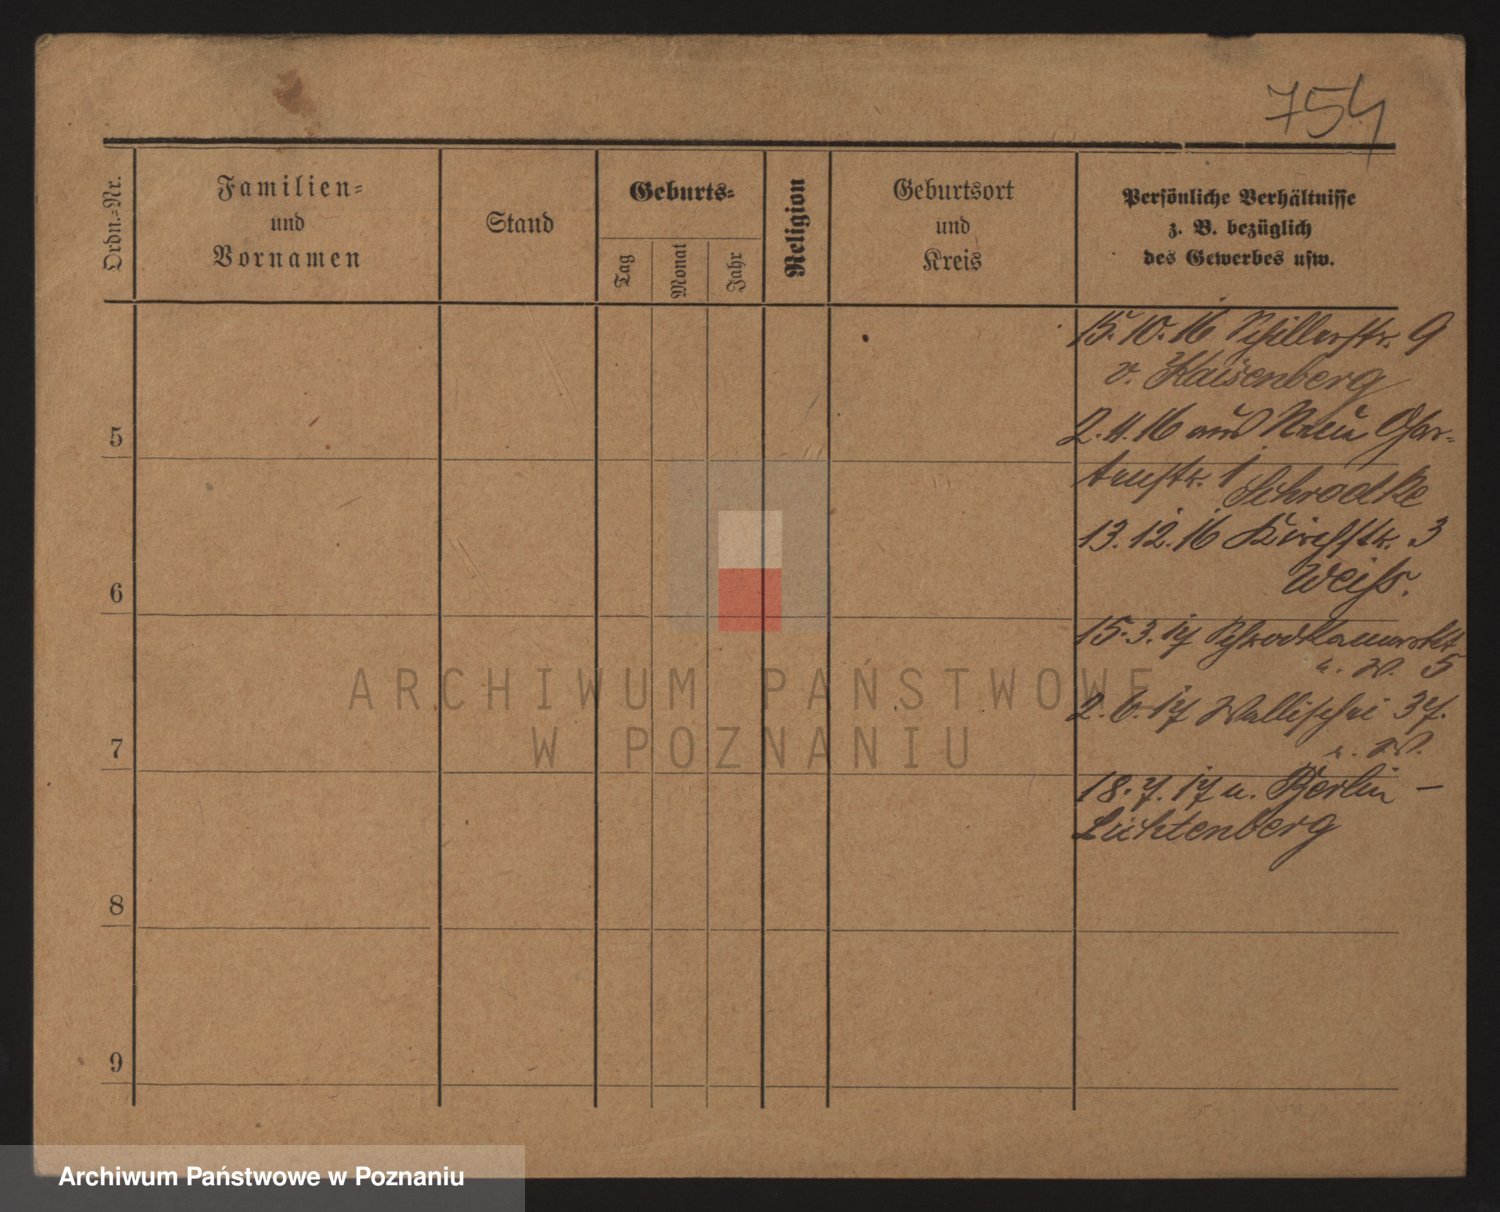 754
Ordn.-Nr.
Familien-
und
Vornamen
Stand
Geburts-
Tag
Monat
Jahr
Religion
Geburtsort
und
Kreis
Persönliche Verhältnisse
z. B. bezüglich
des Gewerbes usw.
15.10.16 Schillerstr. 9
v. Kaisenberg
2.11.16 auf Neue Gar-
5
tenstr. 1 Schrodke
13.12.16 Kirchstr. 3
6
Weiß.
15.3.17 Schrodkamarkt
u. W. 5
2.6.17 Wallischei 37.
7
u. W.
18.7.17 n. Berlin –
Lichtenberg
8
9
ARCHIWUM PAŃSTWOWE
W POZNANIU
Archiwum Państwowe w Poznaniu